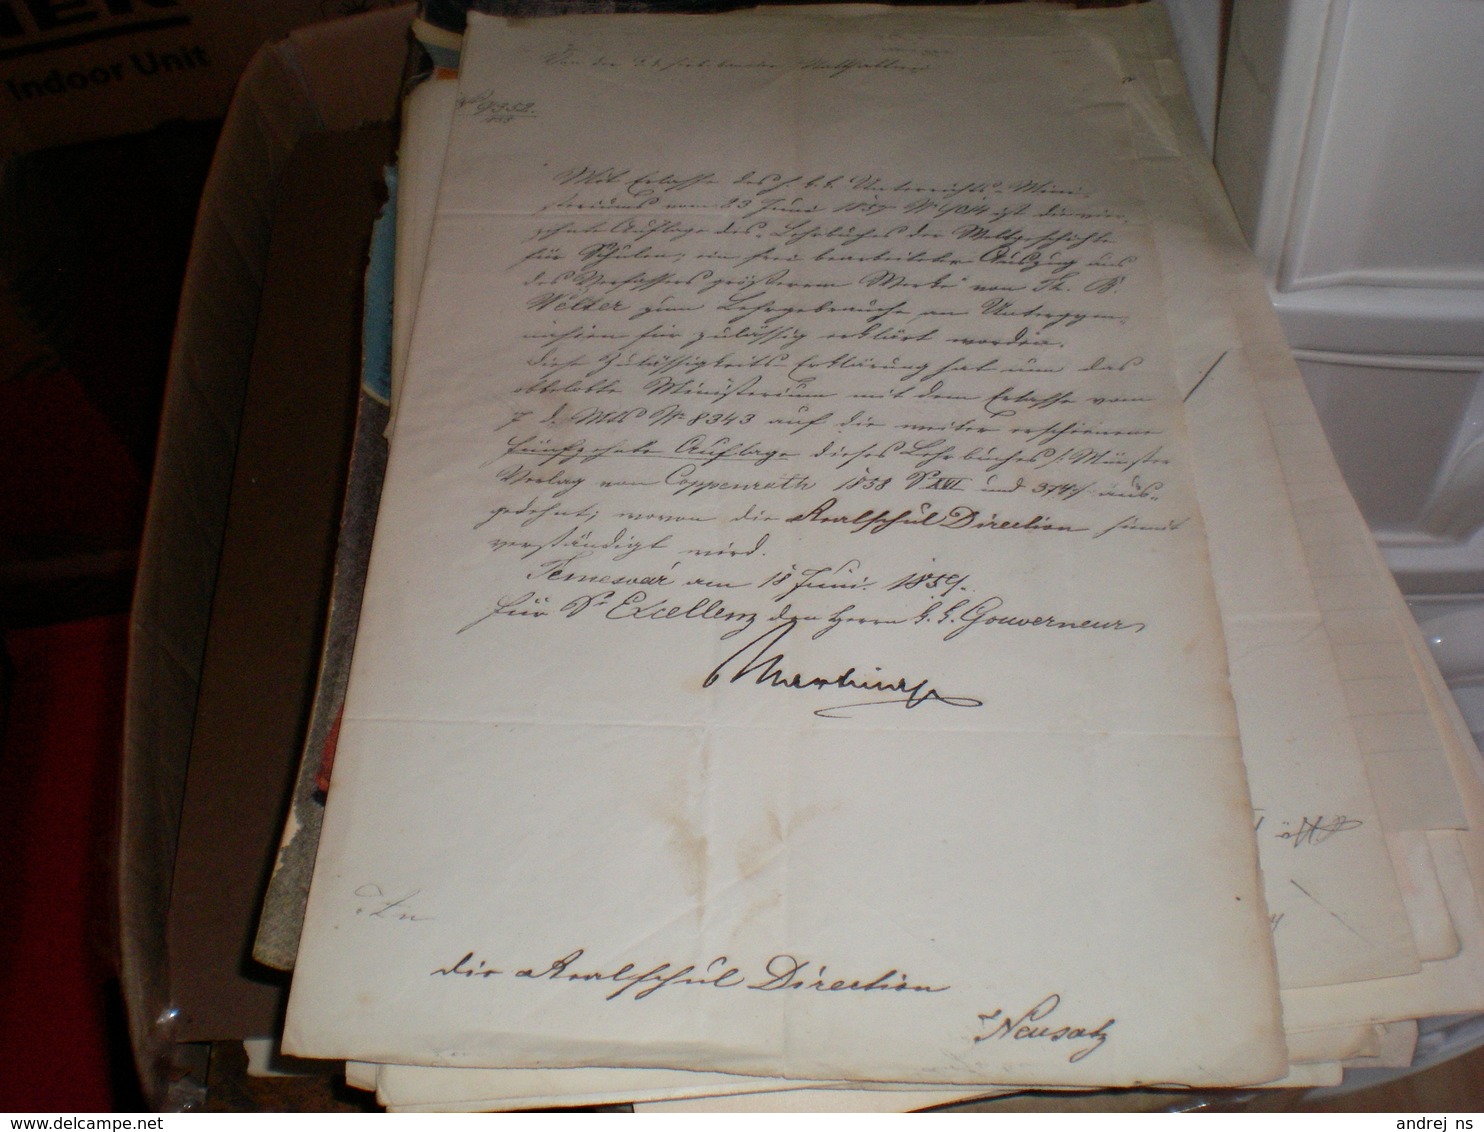 Indoor Unit
Von der k. k. serb. banater Statthalterei
No 9352.
Mit Erlasse des h. k. k. Unterrichts-Mini-
steriums vom 23 Juni 1857 No ist die vier-
zehnte Auflage des Lehrbuches der Weltgeschichte
für Schulen, ein frei bearbeiteter Auszug aus
des Verfassers größerem Werke von Th. B.
Welter zum Lehrgebrauche an Untergym-
nasien für zulässig erklärt worden.
Diese Zulässigkeits-Erklärung hat nun das
obbelobte Ministerium mit dem Erlasse vom
7 d. Mts No 8343 auf die weiter erschienene
fünfzehnte Auflage dieses Lehrbuches /: Münster
Verlag von Coppenrath 1858 S XVI und 374 :/ aus-
gedehnt; wovon die Realschul Direction hiemit
verständigt wird.
Temesvár am 18 Juni 1859.
Für Sr Excellenz den Herrn k. k. Gouverneur
An
die Realschul Direction
Neusatz
www.delcampe.net
andrej_ns